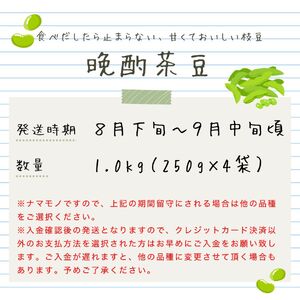 食べだしたら止まらない、甘くておいしい枝豆
晩酌茶豆
発送時期 8月下旬～9月中旬頃
数量 1.0kg(250g×4袋)
※ナマモノですので、上記の期間留守にされる場合は他の品種
をご選択ください。
※入金確認後の発送となりますので、クレジットカード決済以
外のお支払方法を選択された方はお早めにご入金をお願い致し
ます。ご入金が遅れますと、他の品種に変更させて頂く場合も
あります。予めご了承ください。